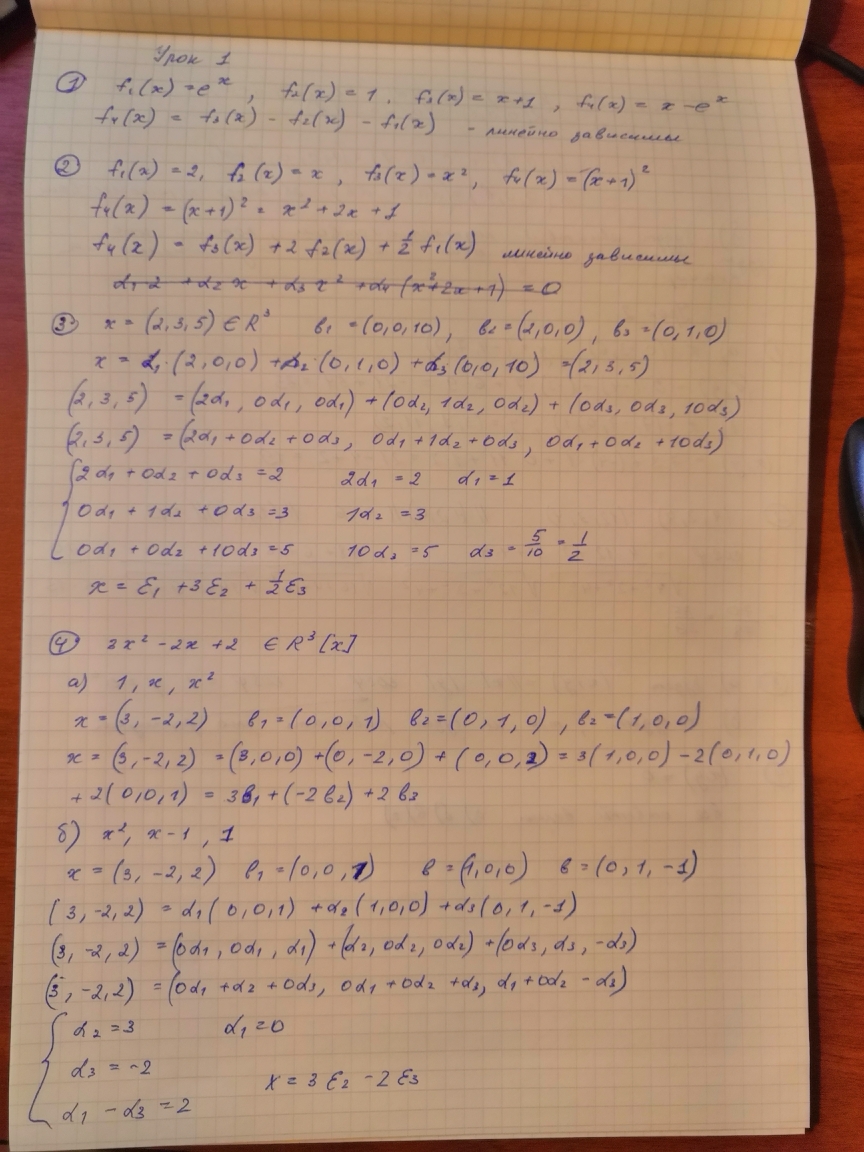 Урок 1
① f₁(x) = eˣ, f₂(x) = 1. f₃(x) = x+1, f₄(x) = x - eˣ
f₄(x) = f₃(x) - f₂(x) - f₁(x) - линейно зависимы
② f₁(x) = 2, f₂(x) = x, f₃(x) = x², f₄(x) = (x+1)²
f₄(x) = (x+1)² = x² + 2x + 1
f₄(x) = f₃(x) + 2f₂(x) + 1/2 f₁(x) линейно зависимы
α₁ 2 + α₂ x + α₃ x² + α₄ (x²+2x+1) = 0
③ x = (2,3,5) ∈ R³ b₁ = (0,0,10), b₂ = (2,0,0), b₃ = (0,1,0)
x = α₁·(2,0,0) + α₂·(0,1,0) + α₃(0,0,10) = (2,3,5)
(2,3,5) = (2α₁, 0α₁, 0α₁) + (0α₂, 1α₂, 0α₂) + (0α₃, 0α₃, 10α₃)
(2,3,5) = (2α₁ + 0α₂ + 0α₃, 0α₁ + 1α₂ + 0α₃, 0α₁ + 0α₂ + 10α₃)
2α₁ + 0α₂ + 0α₃ = 2 2α₁ = 2 α₁ = 1
0α₁ + 1α₂ + 0α₃ = 3 1α₂ = 3
0α₁ + 0α₂ + 10α₃ = 5 10α₃ = 5 α₃ = 5/10 = 1/2
x = ε₁ + 3ε₂ + 1/2 ε₃
④ 3x² - 2x + 2 ∈ R³[x]
а) 1, x, x²
x = (3, -2, 2) b₁ = (0,0,1) b₂ = (0,1,0), b₂ = (1,0,0)
x = (3, -2, 2) = (3,0,0) + (0,-2,0) + (0,0,2) = 3(1,0,0) - 2(0,1,0)
+ 2(0,0,1) = 3b₁ + (-2b₂) + 2b₃
б) x², x-1, 1
x = (3, -2, 2) b₁ = (0,0,1) b = (1,0,0) b = (0,1,-1)
(3, -2, 2) = α₁(0,0,1) + α₂(1,0,0) + α₃(0,1,-1)
(3, -2, 2) = (0α₁, 0α₁, α₁) + (α₂, 0α₂, 0α₂) + (0α₃, α₃, -α₃)
(3, -2, 2) = (0α₁ + α₂ + 0α₃, 0α₁ + 0α₂ + α₃, α₁ + 0α₂ - α₃)
α₂ = 3 α₁ = 0
α₃ = -2
x = 3ε₂ - 2ε₃
α₁ - α₃ = 2